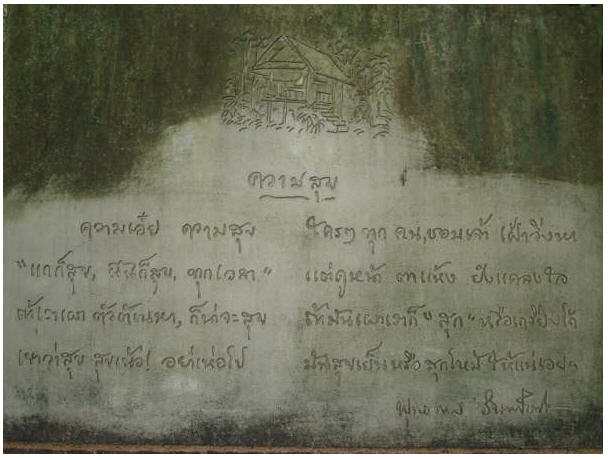 ความสุข
ความเอ๋ย ความสุข ใครๆ ทุก คน,ชอบเจ้า เฝ้าวิ่งหา
"แกก็สุข, ฉันก็สุข, ทุกเวลา" แต่ดูหน้า ตาแห้ง ยังแคลงใจ
ถ้าเราเผา ตัวตัณหา, ก็น่าจะสุข ถ้ามันเผาเราก็ "สุก" หรือเกรียมได้
เขาว่าสุข สุขเน้อ! อย่าเห่อไป มันสุขเย็นหรือสุกไหม้ ให้แน่เอยฯ
พุทธทาส อินทปัญโญ